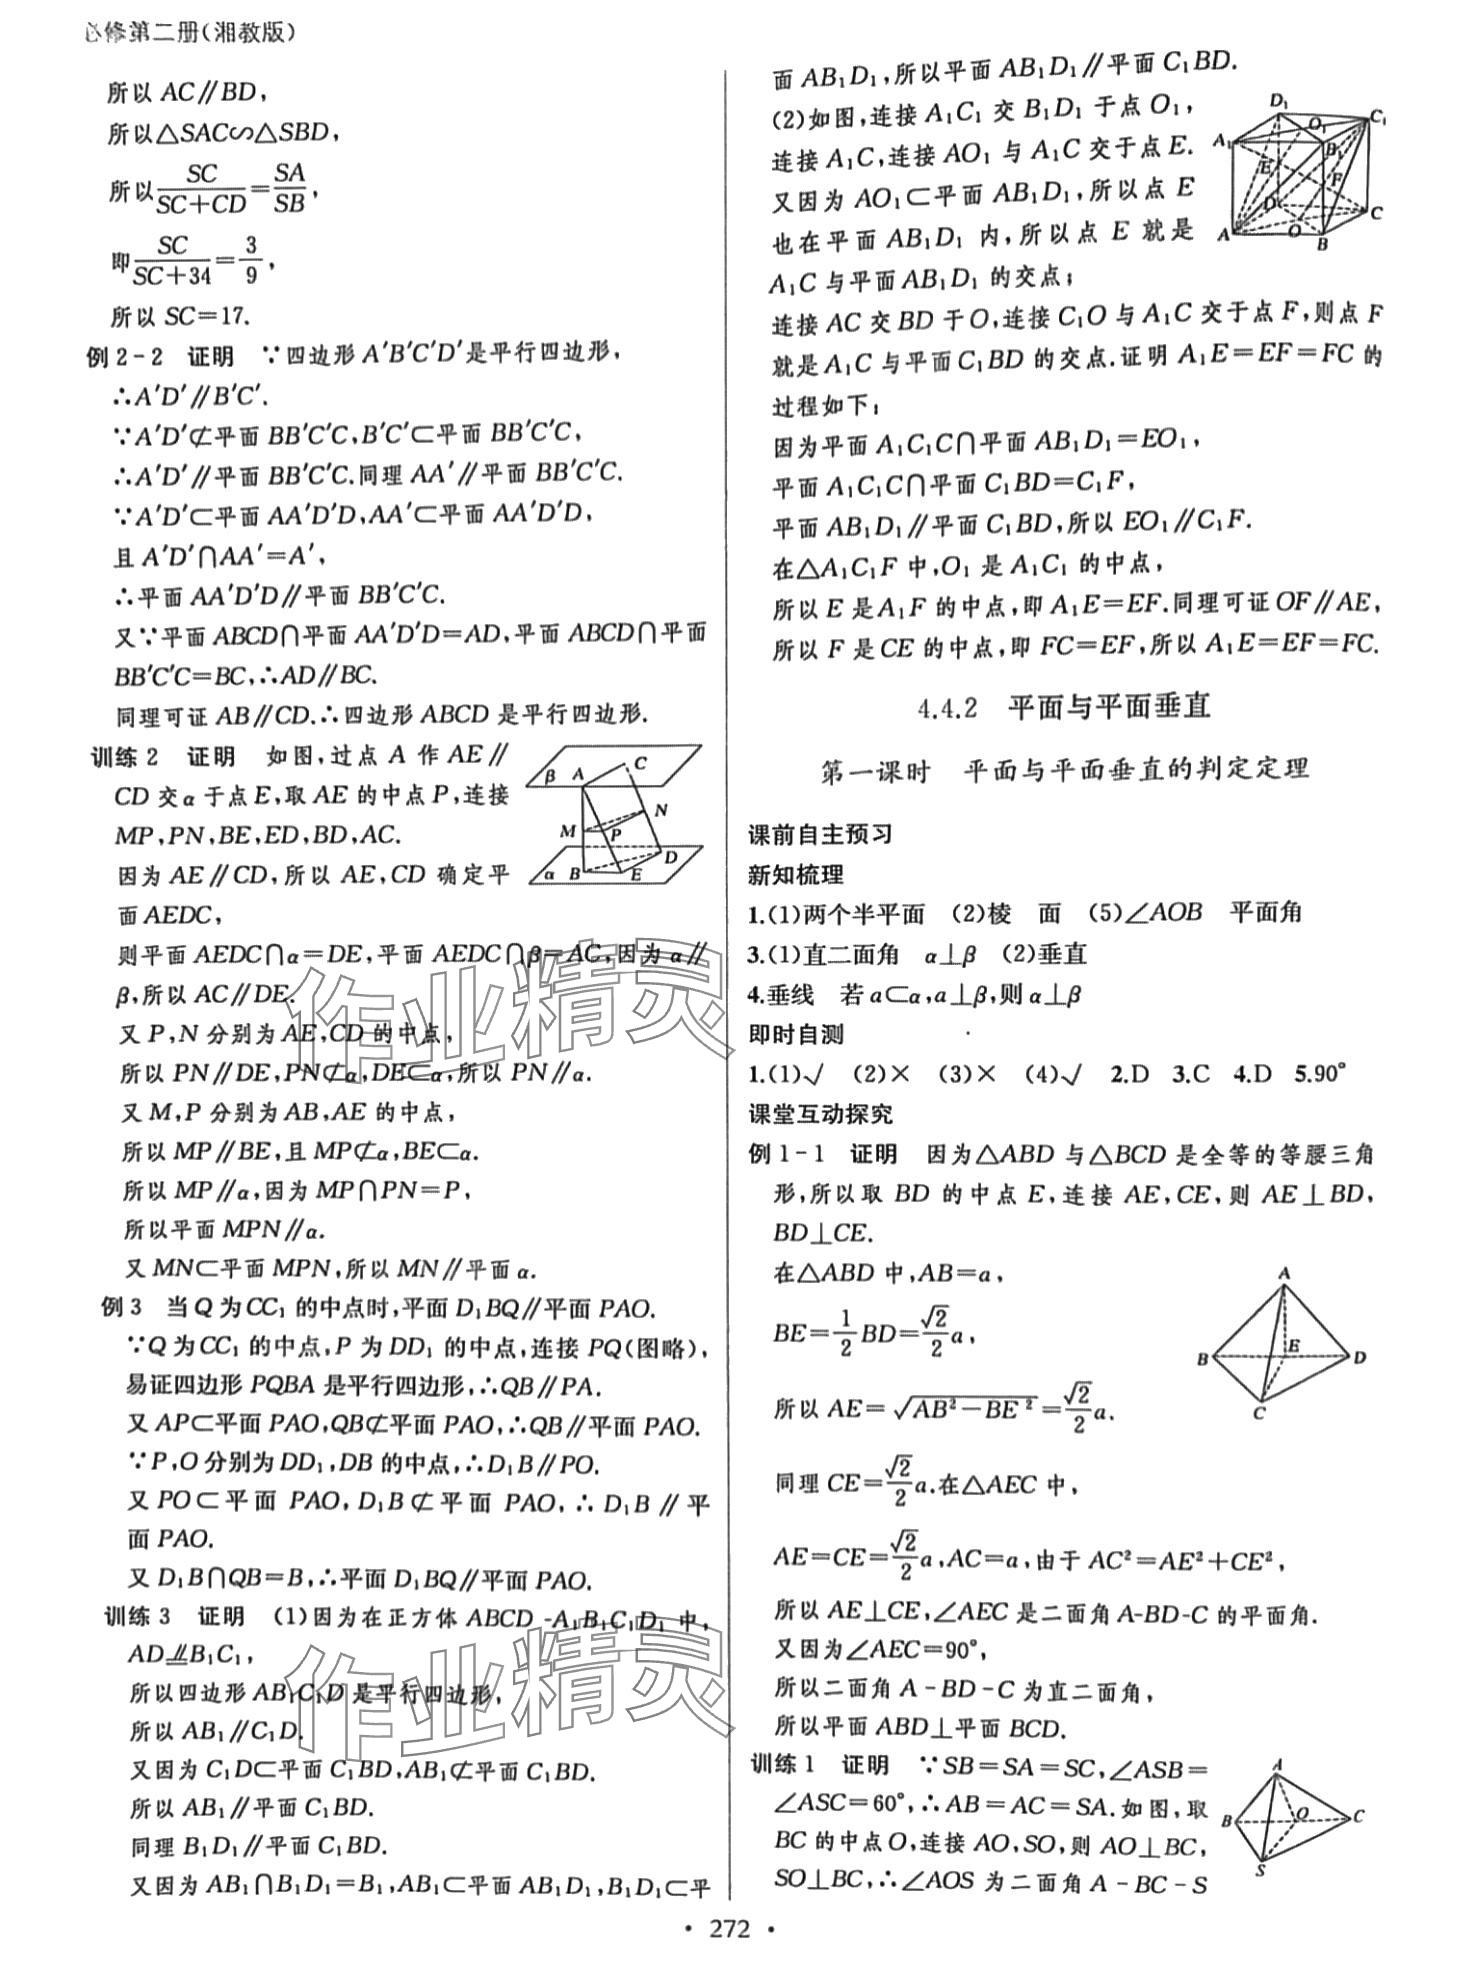 必修第二册(湘教版)
所以 AC∥BD,
所以△SAC∽△SBD,
所以SC/(SC+CD)=SA/SB,
即SC/(SC+34)=3/9,
所以 SC=17.
例 2-2 证明 ∵四边形 A′B′C′D′是平行四边形,
∴A′D′∥B′C′.
∵A′D′⊄平面 BB′C′C,B′C′⊂平面 BB′C′C,
∴A′D′∥平面 BB′C′C.同理 AA′∥平面 BB′C′C.
∵A′D′⊂平面 AA′D′D,AA′⊂平面 AA′D′D,
且 A′D′∩AA′=A′,
∴平面 AA′D′D∥平面 BB′C′C.
又∵平面 ABCD∩平面 AA′D′D=AD,平面 ABCD∩平面
BB′C′C=BC,∴AD∥BC.
同理可证 AB∥CD.∴四边形 ABCD 是平行四边形.
训练 2 证明 如图,过点 A 作 AE∥
CD 交 α 于点 E,取 AE 的中点 P,连接
MP,PN,BE,ED,BD,AC.
因为 AE∥CD,所以 AE,CD 确定平
面 AEDC,
β A C M P N α B E D
则平面 AEDC∩α=DE,平面 AEDC∩β=AC,因为 α∥
β,所以 AC∥DE.
又 P,N 分别为 AE,CD 的中点,
所以 PN∥DE,PN⊄α,DE⊂α,所以 PN∥α.
又 M,P 分别为 AB,AE 的中点,
所以 MP∥BE,且 MP⊄α,BE⊂α.
所以 MP∥α,因为 MP∩PN=P,
所以平面 MPN∥α.
又 MN⊂平面 MPN,所以 MN∥平面 α.
例 3 当 Q 为 CC₁ 的中点时,平面 D₁BQ∥平面 PAO.
∵Q 为 CC₁ 的中点,P 为 DD₁ 的中点,连接 PQ(图略),
易证四边形 PQBA 是平行四边形,∴QB∥PA.
又 AP⊂平面 PAO,QB⊄平面 PAO,∴QB∥平面 PAO.
∵P,O 分别为 DD₁,DB 的中点,∴D₁B∥PO.
又 PO⊂平面 PAO,D₁B⊄平面 PAO,∴D₁B∥平
面 PAO.
又 D₁B∩QB=B,∴平面 D₁BQ∥平面 PAO.
训练 3 证明 (1)因为在正方体 ABCD-A₁B₁C₁D₁ 中,
AD⫽B₁C₁,
所以四边形 AB₁C₁D 是平行四边形,
所以 AB₁∥C₁D.
又因为 C₁D⊂平面 C₁BD,AB₁⊄平面 C₁BD.
所以 AB₁∥平面 C₁BD.
同理 B₁D₁∥平面 C₁BD.
又因为 AB₁∩B₁D₁=B₁,AB₁⊂平面 AB₁D₁,B₁D₁⊂平
作业精灵
作业精灵
面 AB₁D₁,所以平面 AB₁D₁∥平面 C₁BD.
(2)如图,连接 A₁C₁ 交 B₁D₁ 于点 O₁,
连接 A₁C,连接 AO₁ 与 A₁C 交于点 E.
又因为 AO₁⊂平面 AB₁D₁,所以点 E
也在平面 AB₁D₁ 内,所以点 E 就是
A₁C 与平面 AB₁D₁ 的交点;
D₁ C₁ O₁ A₁ B₁ E F D C A O B
连接 AC 交 BD 于 O,连接 C₁O 与 A₁C 交于点 F,则点 F
就是 A₁C 与平面 C₁BD 的交点.证明 A₁E=EF=FC 的
过程如下:
因为平面 A₁C₁C∩平面 AB₁D₁=EO₁,
平面 A₁C₁C∩平面 C₁BD=C₁F,
平面 AB₁D₁∥平面 C₁BD,所以 EO₁∥C₁F.
在△A₁C₁F 中,O₁ 是 A₁C₁ 的中点,
所以 E 是 A₁F 的中点,即 A₁E=EF.同理可证 OF∥AE,
所以 F 是 CE 的中点,即 FC=EF,所以 A₁E=EF=FC.
4.4.2 平面与平面垂直
第一课时 平面与平面垂直的判定定理
课前自主预习
新知梳理
1.(1)两个半平面 (2)棱 面 (5)∠AOB 平面角
3.(1)直二面角 α⊥β (2)垂直
4.垂线 若 a⊂α,a⊥β,则 α⊥β
即时自测
1.(1)√ (2)× (3)× (4)√ 2.D 3.C 4.D 5.90°
课堂互动探究
例 1-1 证明 因为△ABD 与△BCD 是全等的等腰三角
形,所以取 BD 的中点 E,连接 AE,CE,则 AE⊥BD,
BD⊥CE.
在△ABD 中,AB=a,
BE=1/2BD=√2/2a,
所以 AE=√(AB²-BE²)=√2/2a.
A B E D C
同理 CE=√2/2a.在△AEC 中,
AE=CE=√2/2a,AC=a,由于 AC²=AE²+CE²,
所以 AE⊥CE,∠AEC 是二面角 A-BD-C 的平面角.
又因为∠AEC=90°,
所以二面角 A-BD-C 为直二面角,
所以平面 ABD⊥平面 BCD.
训练 1 证明 ∵SB=SA=SC,∠ASB=
∠ASC=60°,∴AB=AC=SA.如图,取
BC 的中点 O,连接 AO,SO,则 AO⊥BC,
SO⊥BC,∴∠AOS 为二面角 A-BC-S
A B O C S
• 272 •